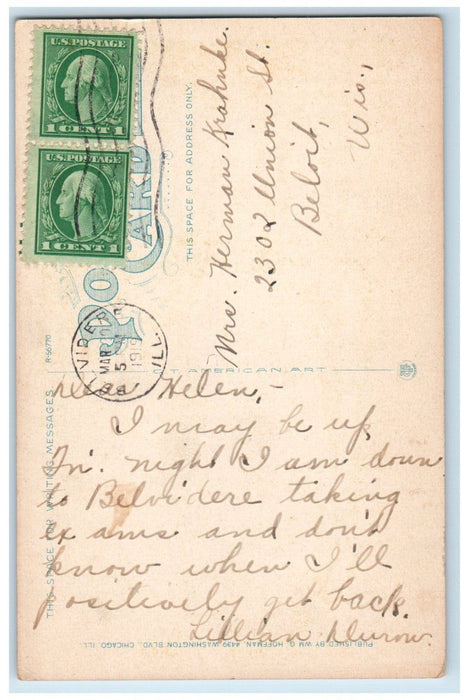 U.S. POSTAGE
1 CENT 1
U.S. POSTAGE
1 CENT 1
POST CARD
THIS SPACE FOR ADDRESS ONLY.
Mrs. Herman Krahnke.
2302 Union St.
Beloit,
Wis.,
R-56770
BELVIDERE
MAR
5
ILL.
AMERICAN ART
THIS SPACE FOR WRITING MESSAGES
Dear Helen,-
I may be up
Fri. night I am down
to Belvidere taking
exams and don't
know when I'll
positively get back.
Lillian Durow.
PUBLISHED BY WM G. HOFFMAN, 4439 WASHINGTON BLVD., CHICAGO, ILL.